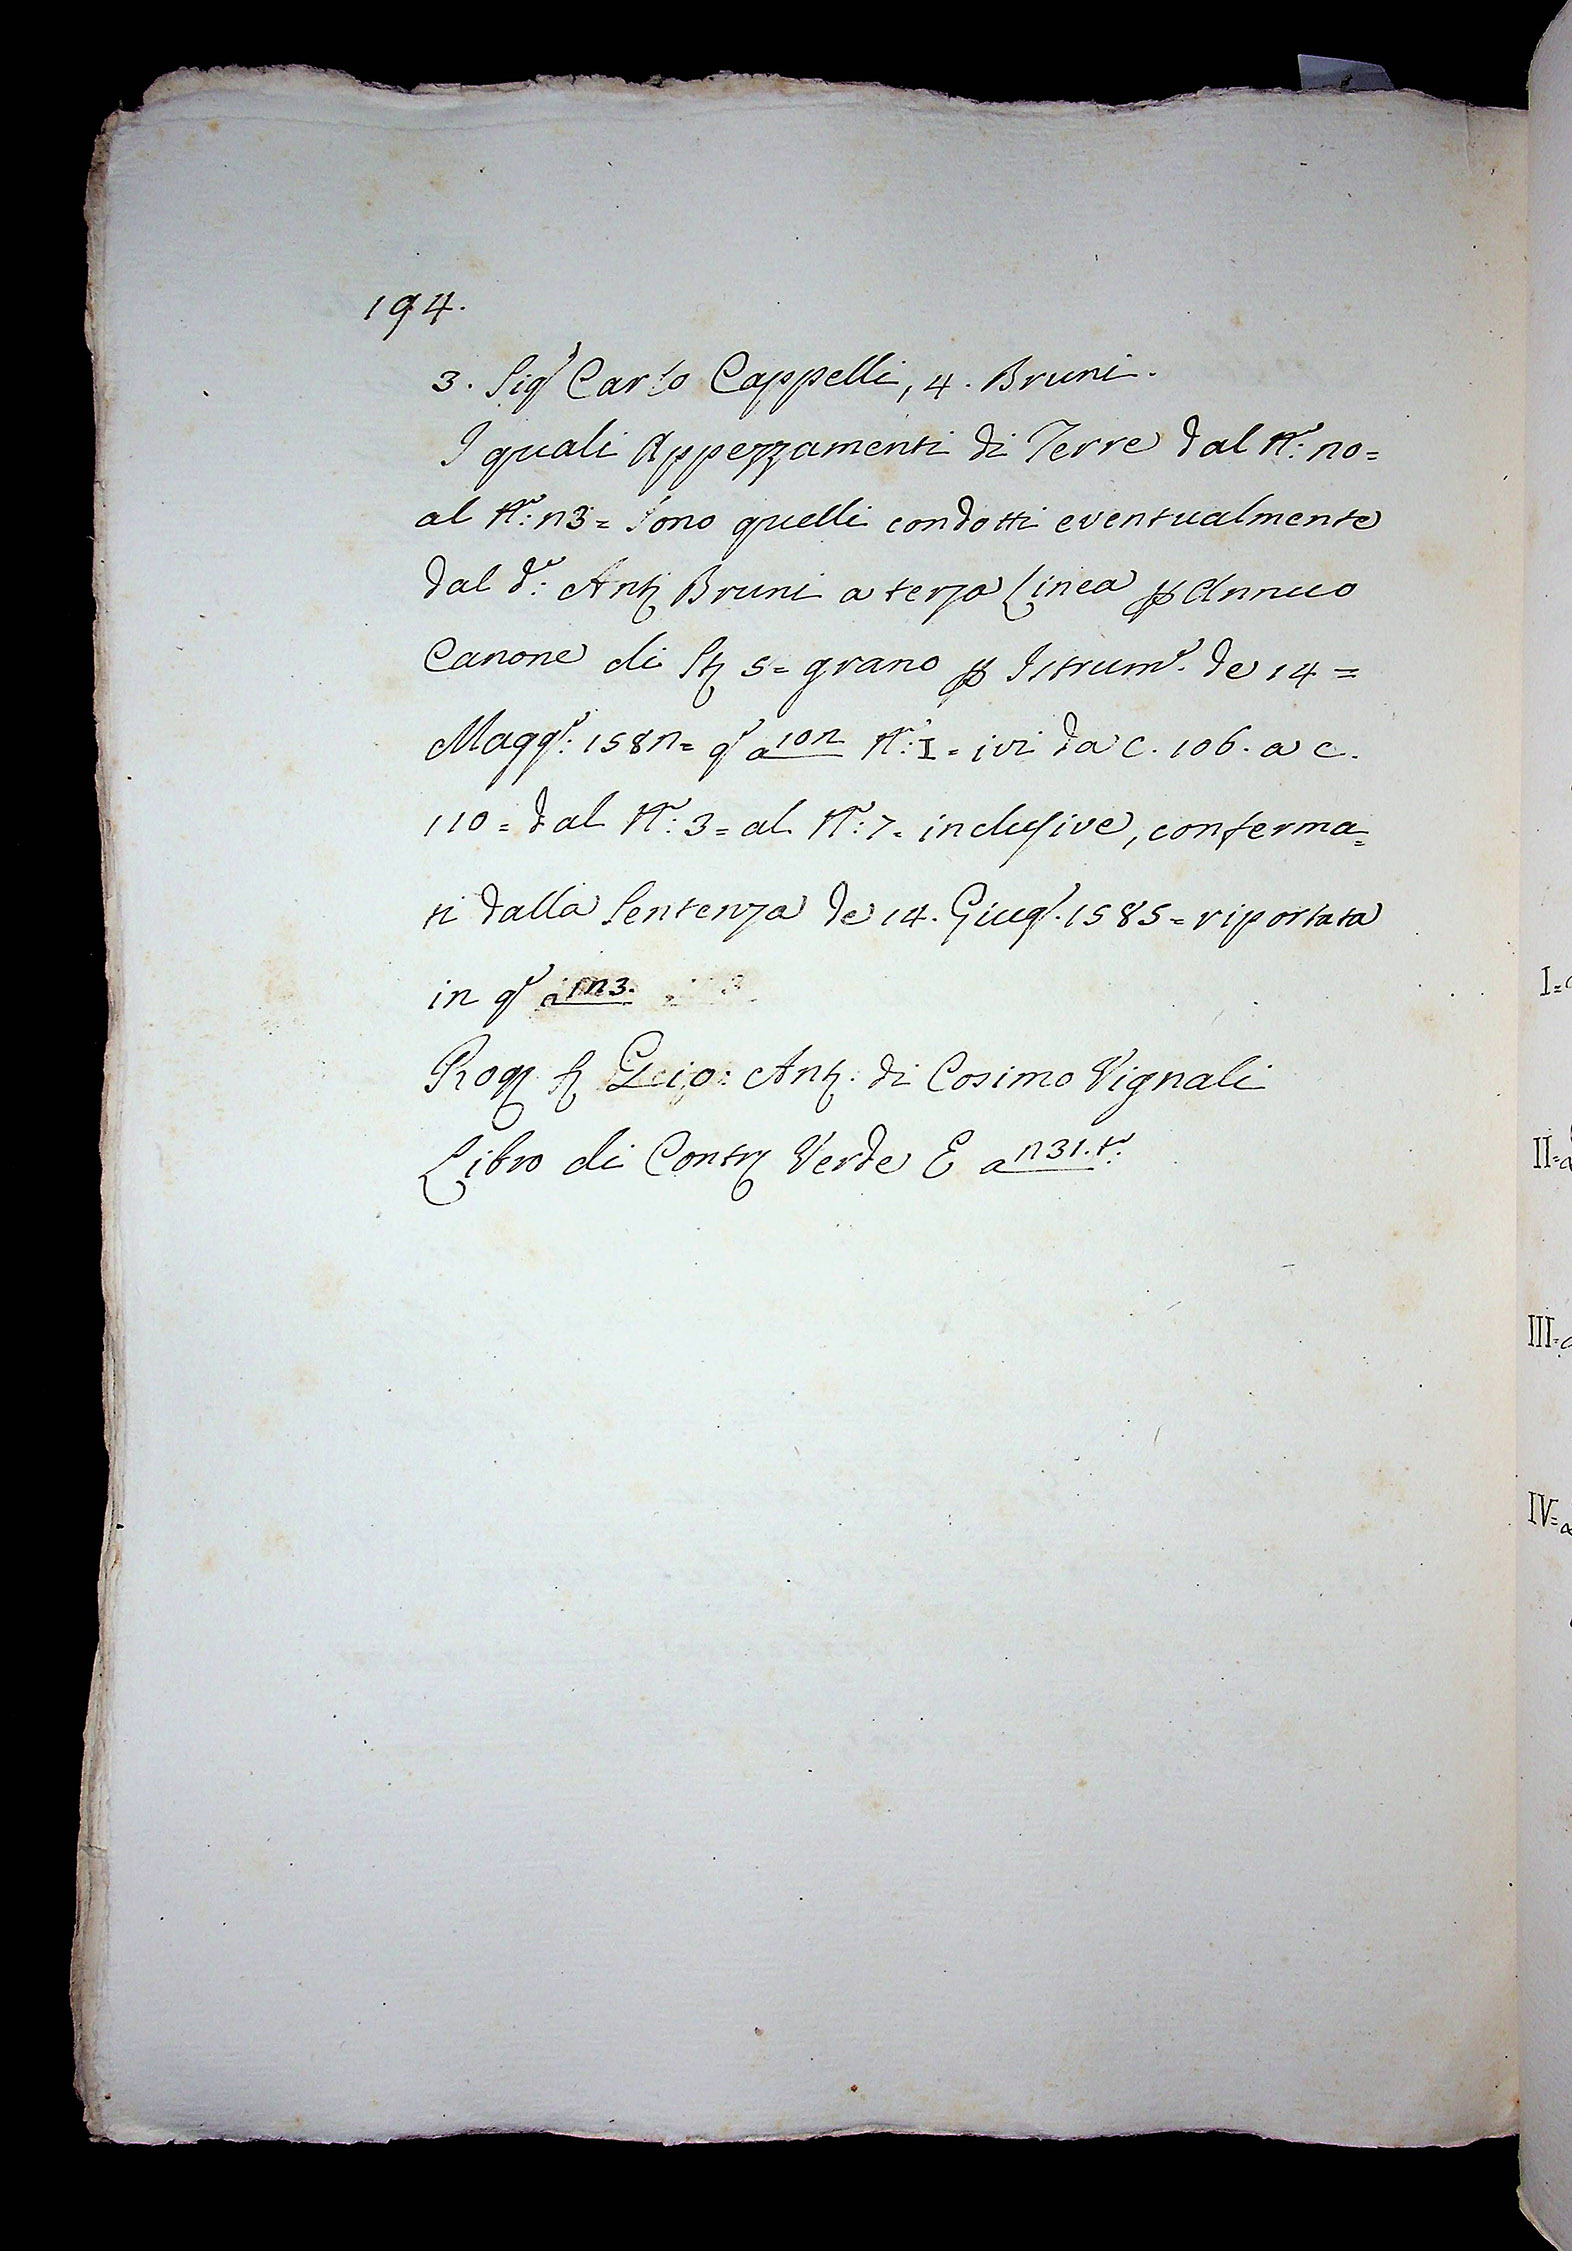 194.
3. Sig.r Carlo Cappelli, 4. Bruni.
I quali Appezzamenti di Terre dal N.o: 20=
al N.o: 23= sono quelli condotti eventualmente
dal d.o: Ant. Bruni a terza Linea p Annuo
Canone di St. 5= grano p Istrum.o. de 14=
Magg.o: 1582= q.o a 102 N.o: I= ivi da c. 106. a c.
110= dal N.o: 3= al N.o: 7= inclusive, conferma=
ti dalla Sentenza de 14. Giug.o. 1585= riportata
in q.o a 123.
Rog. S. Gio: Ant. di Cosimo Vignali
Libro di Contr. Verde E a 231. t.o:
I=
II=a
III=
IV=a